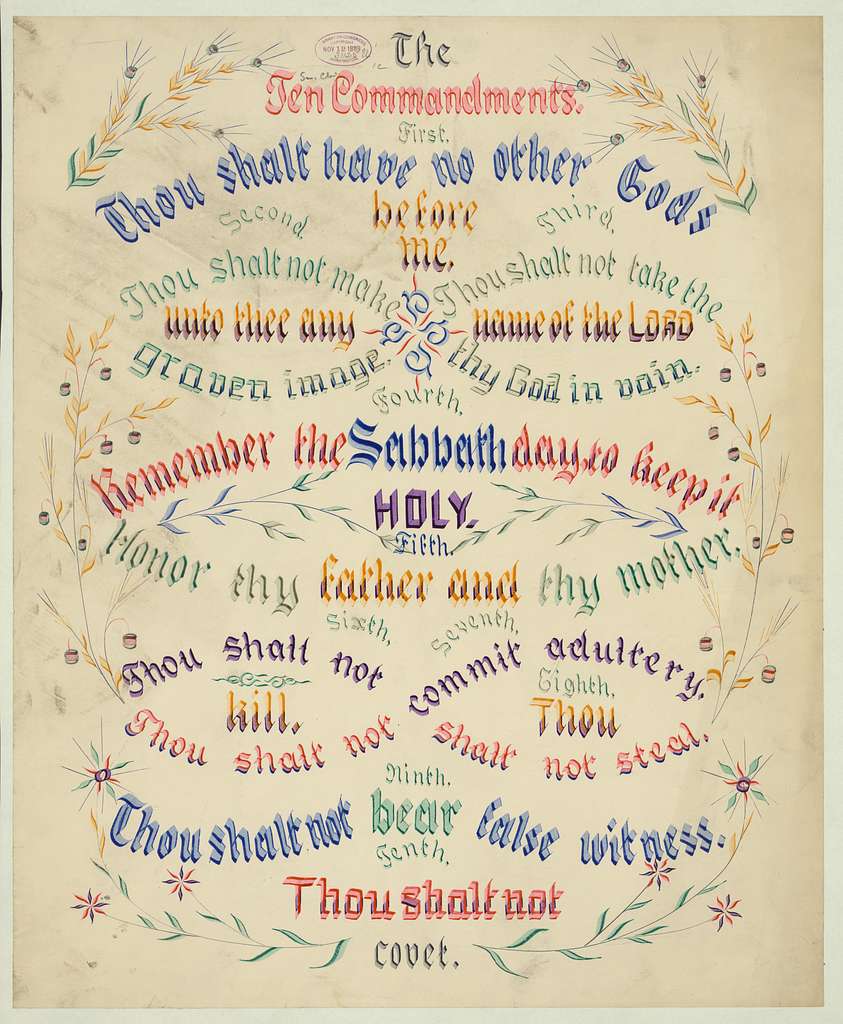 The
NOV 12 1889
Ten Commandments.
First.
Thou shalt have no other Gods
before
me.
Second,
Thou shalt not make
unto thee any
graven image.
Third,
Thou shalt not take the
name of the LORD
thy God in vain.
Fourth,
Remember the Sabbath day, to keep it
HOLY.
Fifth.
Honor thy father and thy mother.
Sixth,
Thou shalt not
kill.
Seventh,
Thou shalt not commit adultery.
Eighth,
Thou
shalt not steal.
Ninth.
Thou shalt not bear false witness.
Tenth,
Thou shalt not
covet.